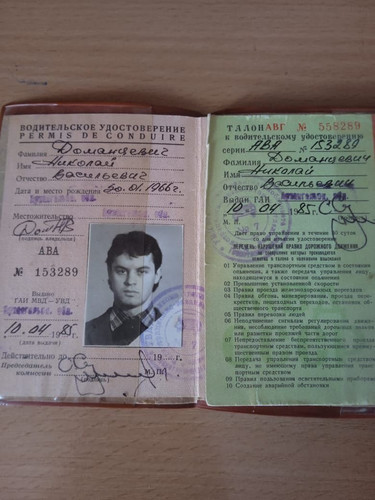 ВОДИТЕЛЬСКОЕ УДОСТОВЕРЕНИЕ
PERMIS DE CONDUIRE
Фамилия Доманцевич
Имя Николай
Отчество Васильевич
Дата и место рождения 30.01.1966г.
Местожительство
(подпись владельца)
АВА
№ 153289
Выдано
ГАИ МВД—УВД
10.04 1985г.
(дата выдачи)
Действительно до 19 г.
Председатель
комиссии
М.П.
ТАЛОН АВГ № 558289
к водительскому удостоверению
серии АВА № 153289
Фамилия Доманцевич
Имя Николай
Отчество Васильевич
Выдан ГАИ
10 04 85
м. п.
Дает право управления в течение
ПЕРЕЧЕНЬ НАРУШЕНИЙ ПРАВИЛ ДОРОЖНОГО ДВИЖЕНИЯ,
за которые штрафы взимаются
01 Управление транспортным средством в состоянии
опьянения, а также передача управления лицу,
находящемуся в состоянии опьянения
02 Превышение установленной скорости
03 Правила проезда железнодорожных переездов
04 Правила обгона, маневрирования, проезда пере-
крестков, пешеходных переходов, остановок об-
щественного транспорта
05 Правил перевозки людей
06 Неподчинение сигналам регулирования движе-
ния, несоблюдение требований дорожных знаков
или разметки проезжей части дорог
07 Непредоставление беспрепятственного проезда
транспортным средствам, пользующимся преимуще-
ственным правом проезда
08 Передача управления транспортным средством
лицу, не имеющему права управления таким транс-
портным средством
09 Правил пользования осветительными приборами
10 Создание аварийной обстановки